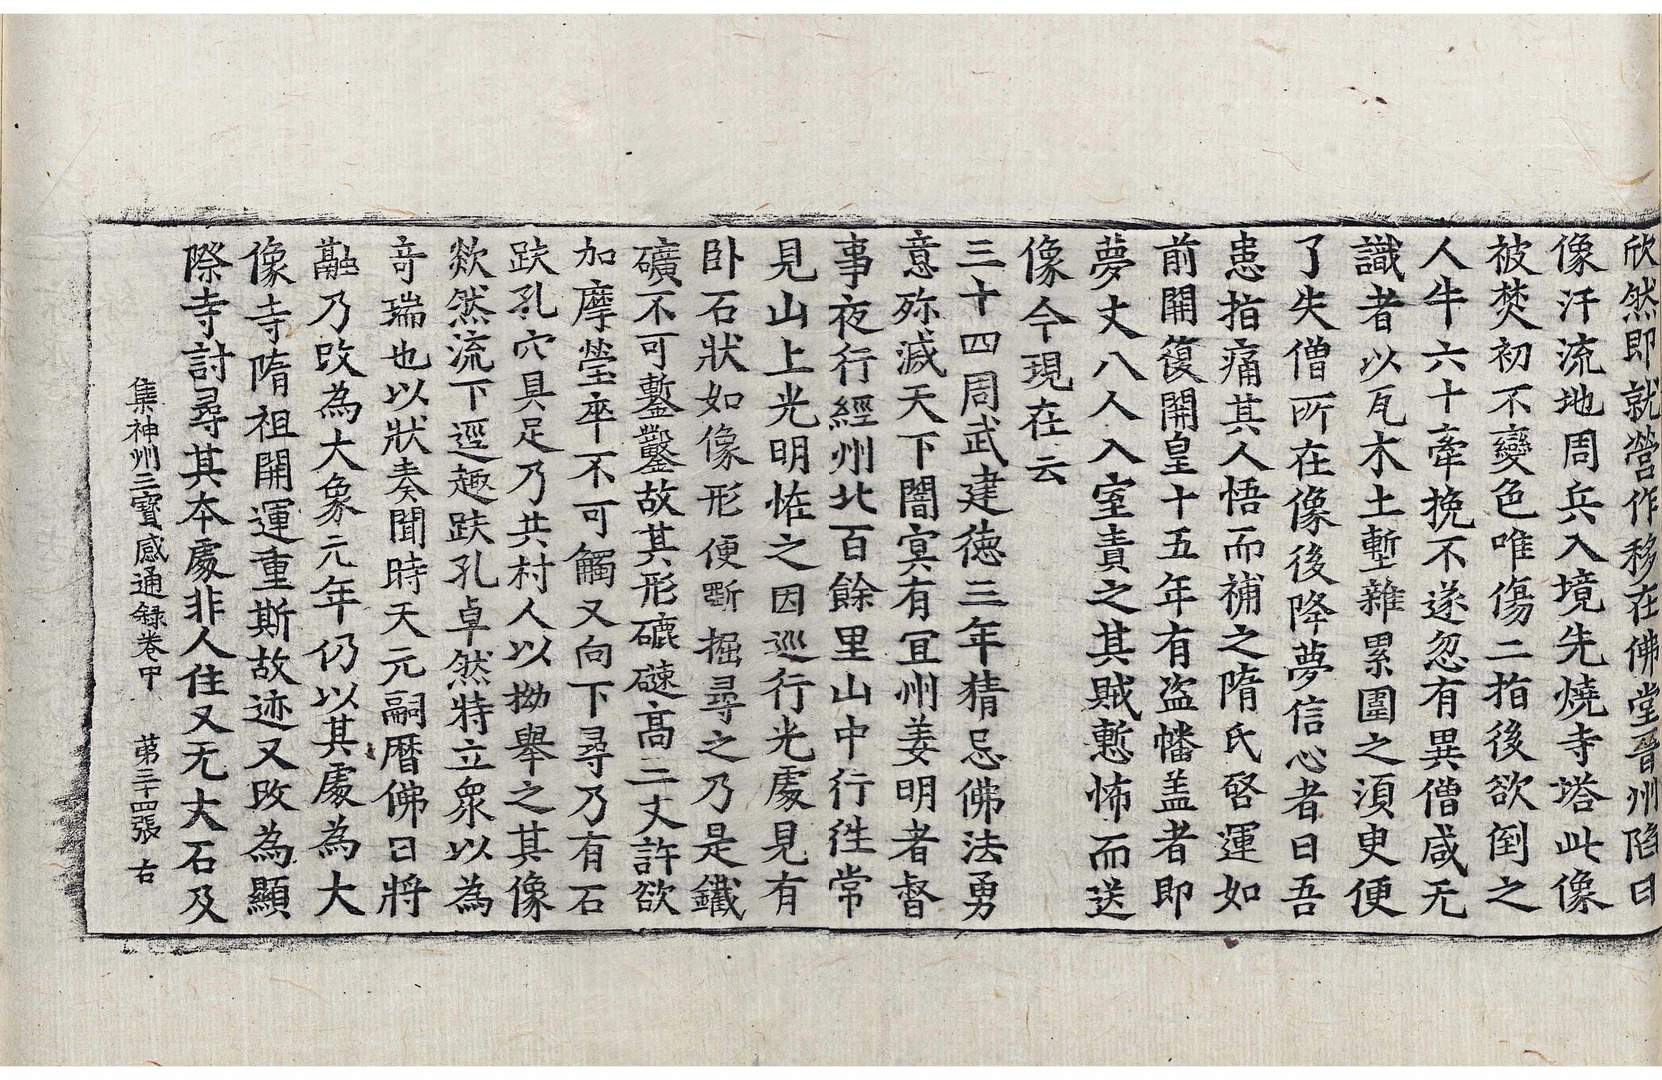 欣然即就營作移在佛堂晉州陷日
像汗流地周兵入境先燒寺塔此像
被焚初不變色唯傷二指後欲倒之
人牛六十牽挽不遂忽有異僧咸无
識者以瓦木土墼雜累圍之湏臾便
了失僧所在像後降夢信心者曰吾
患指痛其人悟而補之隋氏啓運如
前開復開皇十五年有盜幡盖者即
夢丈八人入室責之其賊慙怖而送
像今現在云
三十四周武建德三年猜忌佛法勇
意殄滅天下闇㝠有宜州姜明者督
事夜行經州北百餘里山中行徃常
見山上光明恠之因巡行光處見有
卧石狀如像形便斸掘尋之乃是鐵
礦不可鏨鑿故其形磄磩高二丈許欲
加摩瑩卒不可觸又向下尋乃有石
趺孔穴具足乃共村人以拗舉之其像
欻然流下逕趣趺孔卓然特立衆以為
竒瑞也以狀奏聞時天元嗣曆佛日將
融乃改為大象元年仍以其處為大
像寺隋祖開運重斯故迹又改為顯
際寺討尋其本處非人住又无大石及
集神州三寶感通録卷甲 苐三十四張 右